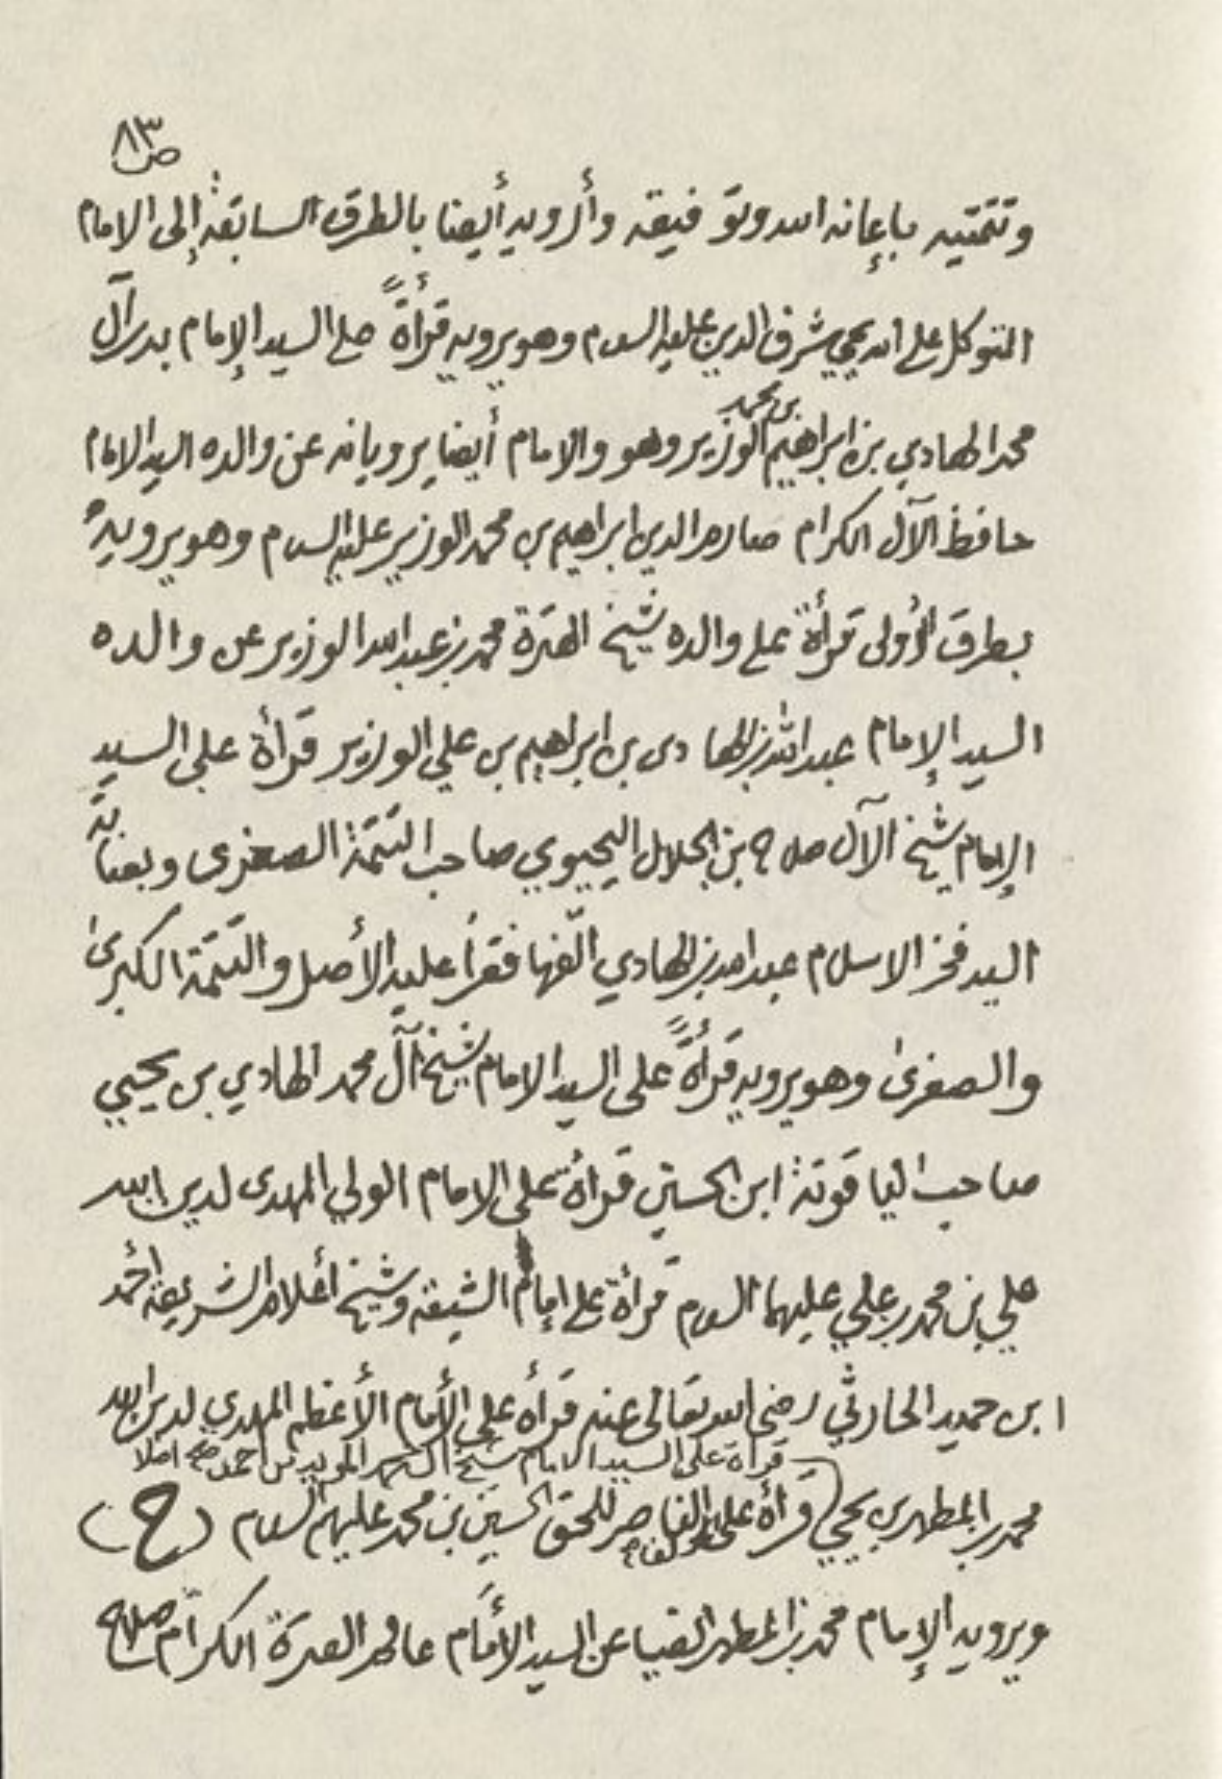 ص ٨٣
وتتمتيه بإعانه الله وتوفيقه وأرويه أيضا بالطرق السابقة إلى الامام
المتوكل على الله يحيى شرف الدين عليه السلام وهو يرويه قرأةً على السيد الإمام بدر آل
محمد الهادي بن ابراهيم الوزير وهو والامام أيضا يرويانه عن والده السيد الامام
بن محمد
حافظ الآل الكرام صارم الدين ابراهيم بن محمد الوزير عليه السلام وهو يرويه
بطرق الأولى قرأة على والده شيخ العترة محمد بن عبدالله الوزير عن والده
السيد الإمام عبدالله بن الهادى بن ابراهيم بن علي الوزير قرأة على السيد
الإمام شيخ الآل صلاح بن الجلال اليحيوي صاحب التتمة الصغرى وبعناية
السيد فخر الاسلام عبدالله بن الهادي الفها فقرأ عليه الأصل والتتمة الكبرى
والصغرى وهو يرويه قرأةً على السيد الامام شيخ آل محمد الهادي بن يحيى
صاحب الياقوتة ابن الحسين قرأة على الامام الولي المهدى لدين الله
علي بن محمد بن علي عليهما السلام قرأة على إمام الشيعة وشيخ أعلام الشريعة أحمد
ابن حميد الحارثي رضي الله تعالى عنه قرأه على الأمام الأعظم المهدي لدين الله
قرأة على السيد الامام شيخ المويد بن احمد املا
محمد بن المطهر بن يحيى قرأه على الناصر للحق الحسين بن محمد عليهم السلام (ح)
ويرويه الإمام محمد بن المطهر ايضا عن السيد الأمام عالم العترة الكرام صلاح